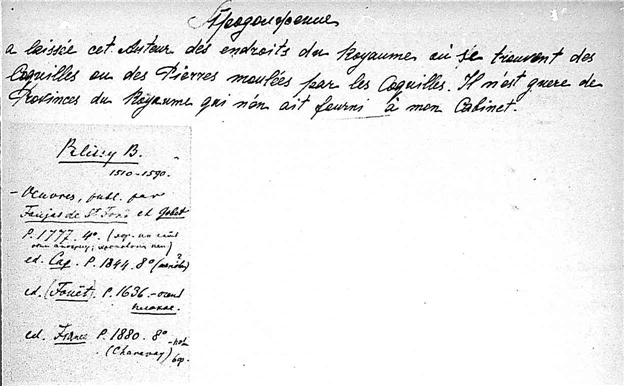 Продолжение
a laissée cet Auteur des endroits du Royaume où se trouvent des
Coquilles ou des Pierres moulées par les Coquilles. Il n'est guere de
Provinces du Royaume qui n'en ait fourni à mon Cabinet.
Palissy B.
1510-1590.
- Oeuvres, publ. par
Faujas de St Fond et Gobet
P. 1777. 4º.
ed. Cap. P. 1844. 8º
ed. (Fouët). P. 1636. -
ed. France P. 1880. 8º
(Charavay)